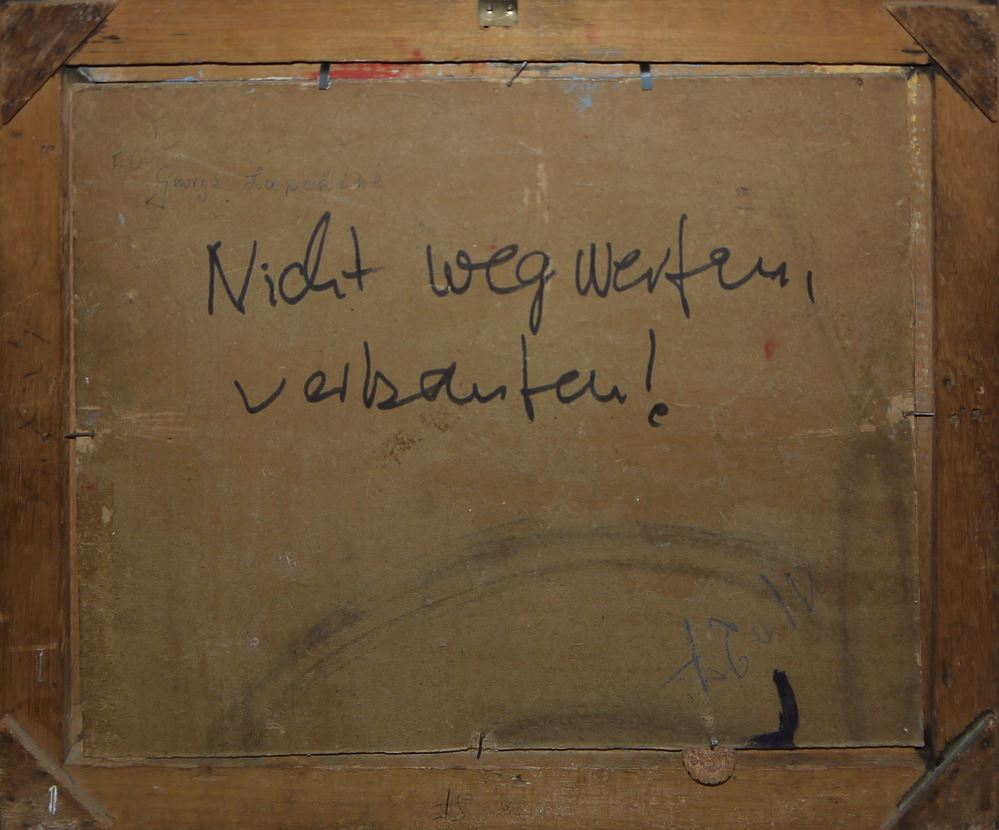 George Lapchine
Nicht wegwerfen,
verkaufen!